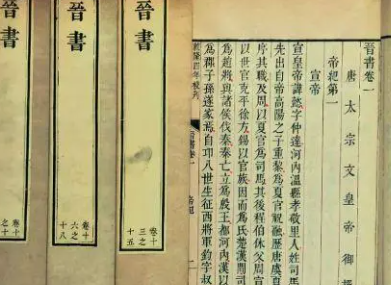 晉書卷一
唐太宗文皇帝御撰
帝紀第一
宣帝
宣皇帝諱懿字仲達河內溫縣孝敬里人姓司馬
先出自帝高陽之子重黎為夏官祝融歷唐虞夏
序其職及周以夏官為司馬其後程伯休父周宣
以世官克平徐方錫以官族因而為氏楚漢間司
為趙將與諸侯伐秦秦亡立為殷王都河內漢以
為郡子孫遂家焉自卬八世生征西將軍鈞字叔
乾隆四年校刊
晉書卷一
帝紀
晉書
卷十
三之
十五
晉書
卷十
六之
十八
晉書